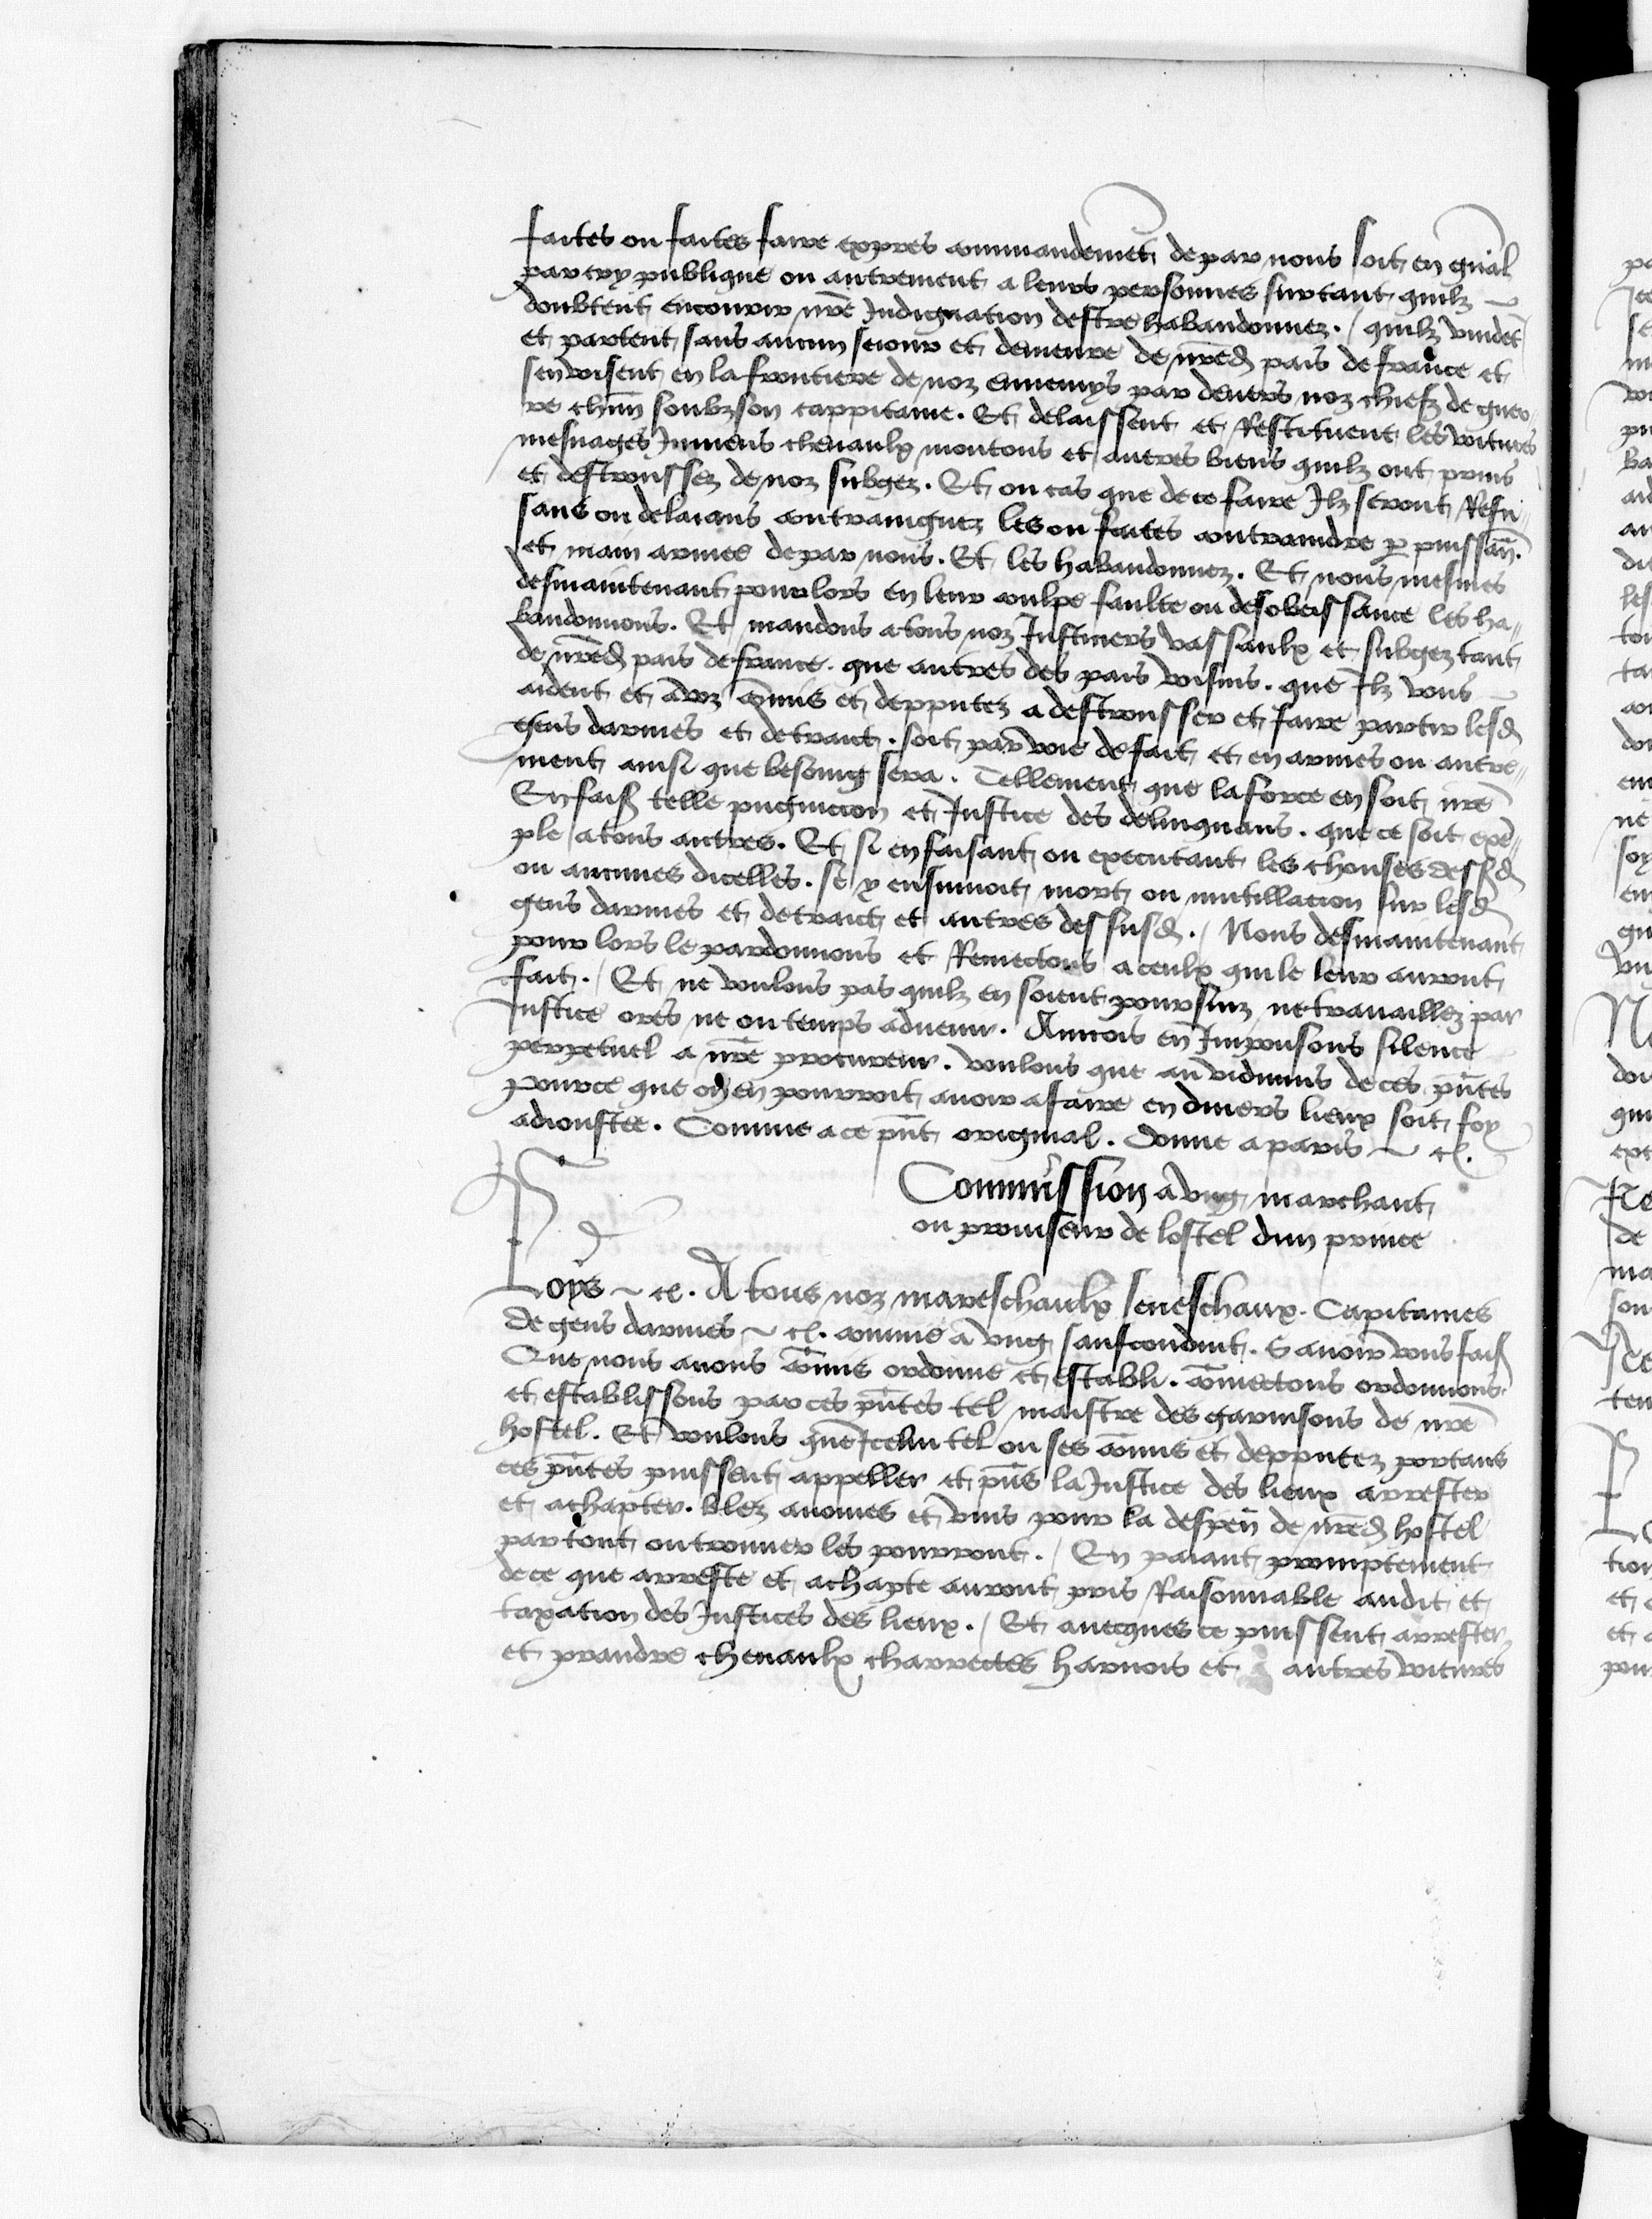 faites ou faites faire expres commandemēt de par nous soit en gn̄al
par cry publique ou autrement a leurs personnes sur tant quilz
doubtent encourir nr̄e Indignation destre habandonnez . quilz vuidēt
et partent sans aucun seiour et demeure de nr̄ed pais de france et
sen voisent en la frontiere de noz ennemys par deuers noz chiefz de guer
re chūn soubz son cappitaine . Et delaissent et Restituent les voitures
mesnages Jumens cheuaulx moutons et autres biens quilz ont prins
et destroussez de noz subgez . Et ou cas que de ce faire Ilz seront Refu
sans ou delaians contraingnez les ou faites contraindre p puissan̄
et main armee de par nous . Et les habandonnez . Et nous mesmes
desmaintenant pour lors en leur coulpe faulte ou desobeissance les ha
bandonnons . Et mandons a tous noz Justiciers vassaulx et subgez tant
de nr̄ed pais de france . que autres des pais voisins . que Ilz vous
aident et a voz cōmis et depputez a destrousser et faire partir lesd
gens darmes et de traict . soit par voie de fait et en armes ou autre
ment ainsi que besoing sera . Tellement que la force en soit nr̄e
En fais telle pugnicion et Justice des delinquans . que ce soit exē
ple a tous autres . Et si en faisant ou executant les chouses dessusd
ou aucunes dicelles . se y ensuiuoit mort ou mutillacion sur lesd
gens darmes et de traict et autres dessusd . Nous desmaintenant
pour lors le pardonnons et Remectons a ceulx qui le leur auront
fait . Et ne voulons pas quilz en soient poursuiz ne trauaillez par
Justice ores ne ou temps aduenir . Aincois en Imposons silence
perpetuel a nr̄e procureur . voulons que au vidimus de ces pn̄tes
pource que on en pourroit auoir a faire en diuers lieux soit foy
adioustee . Comme a ce pn̄t original . Donne a paris ~ etc .
Commission a vng marchant
ou prouiseur de lostel dun prince
Loys ~ etc . A tous noz mareschaulx seneschaux . Capitaines
de gens darmes ~ etc . comme a vng saufconduit . Sauoir vous fais
Que nous auons cōmis ordonne et establi . cōmectons ordonnons
et establissons par ces pn̄tes tel maistre des garnisons de nr̄e
hostel . Et voulons que Icelui tel ou ses cōmis et depputez portans
ces pn̄tes puissent appeller et pn̄s la Justice des lieux arrester
et achapter . blez auoines et vins pour la despen̄ de nr̄ed hostel
par tout ou trouuer les pourront . En paiant promptement
de ce que arreste et achapte auront pris Raisonnable audit et
taxation des Justices des lieux . Et auecques ce puissent arrester
et prandre cheuaulx charrectes harnois et autres voitures